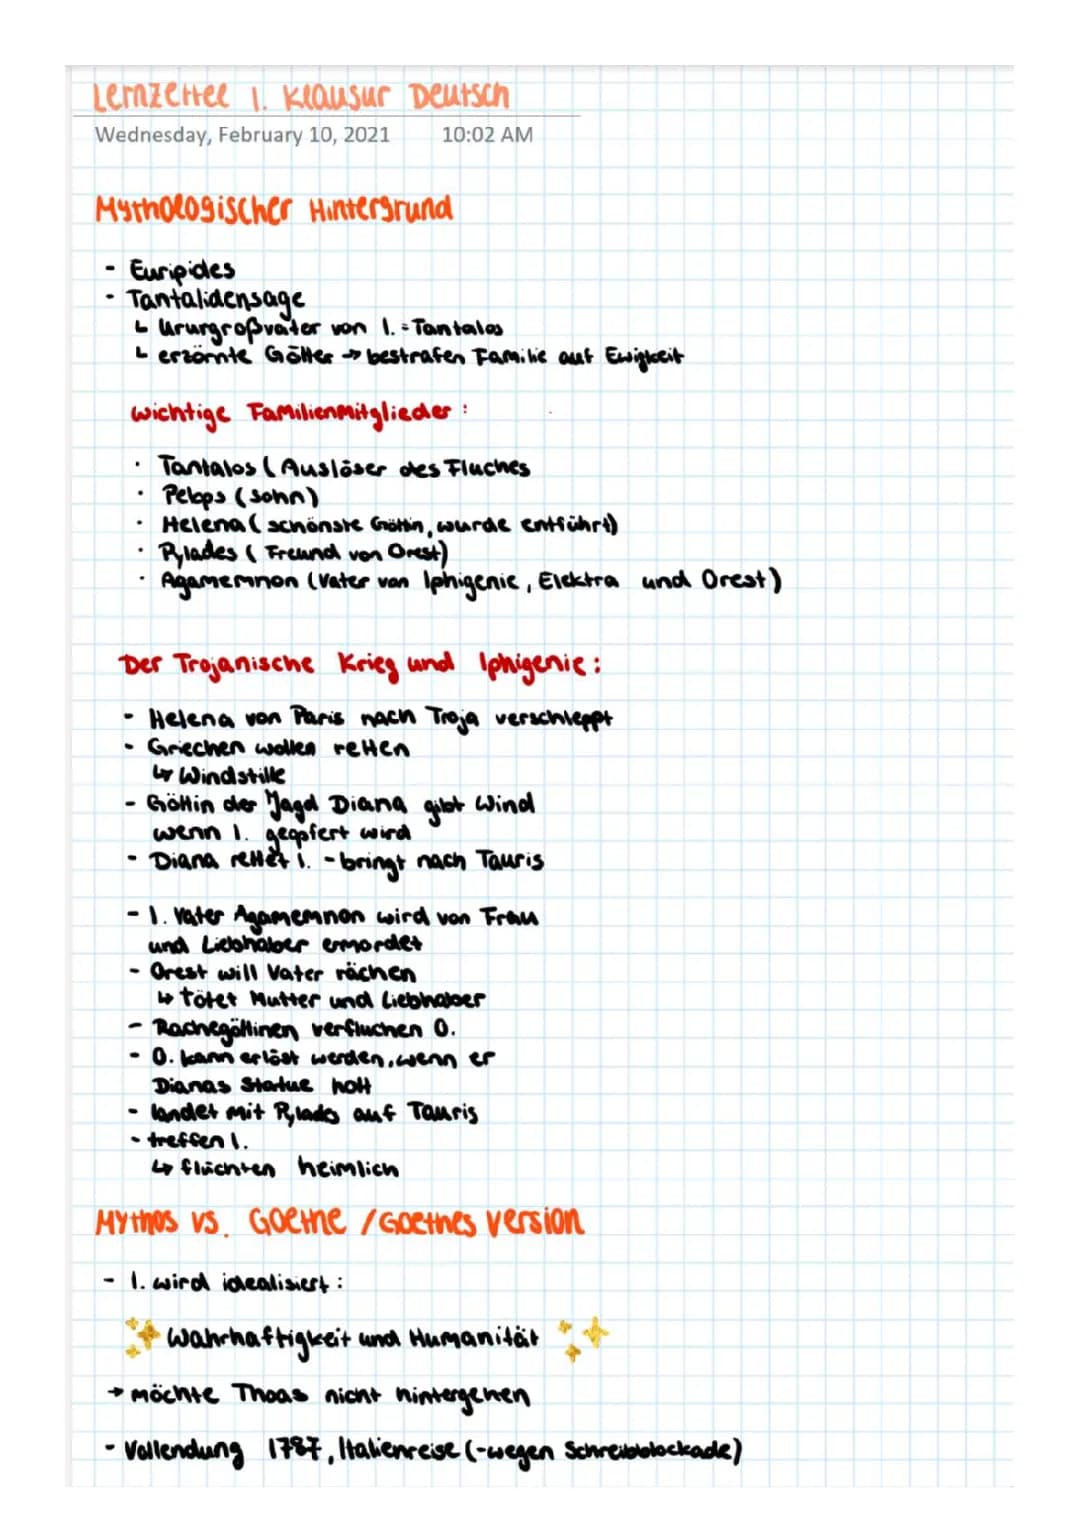 Lernzettel 1. Klausur Deutsch
Wednesday, February 10, 2021 10:02 AM
Mythologischer Hintergrund
- Euripides
- Tantalidensage
↳ Ururgroßvater von I. = Tantalos
↳ erzörnte Götter → bestrafen Familie auf Ewigkeit
wichtige Familienmitglieder :
· Tantalos ( Auslöser des Fluches
· Pelops (Sohn)
· Helena ( schönste Göttin, wurde entführt)
· Pylades ( Freund von Orest)
· Agamemnon (Vater von Iphigenie, Elektra und Orest)
Der Trojanische Krieg und Iphigenie :
- Helena von Paris nach Troja verschleppt
- Griechen wollen retten
↳ Windstille
- Göttin der Jagd Diana gibt Wind
wenn I. geopfert wird
- Diana rettet I. - bringt nach Tauris
- I. Vater Agamemnon wird von Frau
und Liebhaber ermordet
- Orest will Vater rächen
↳ tötet Mutter und Liebhaber
- Rachegöttinen verfluchen O.
- O. kann erlöst werden, wenn er
Dianas Statue holt
- landet mit Pylades auf Tauris
- treffen I.
↳ flüchten heimlich
Mythos vs. Goethe / Goethes Version
- I. wird idealisiert :
Wahrhaftigkeit und Humanität
→ möchte Thoas nicht hintergehen
- Vollendung 1787, Italienreise (-wegen Schreibblockade)